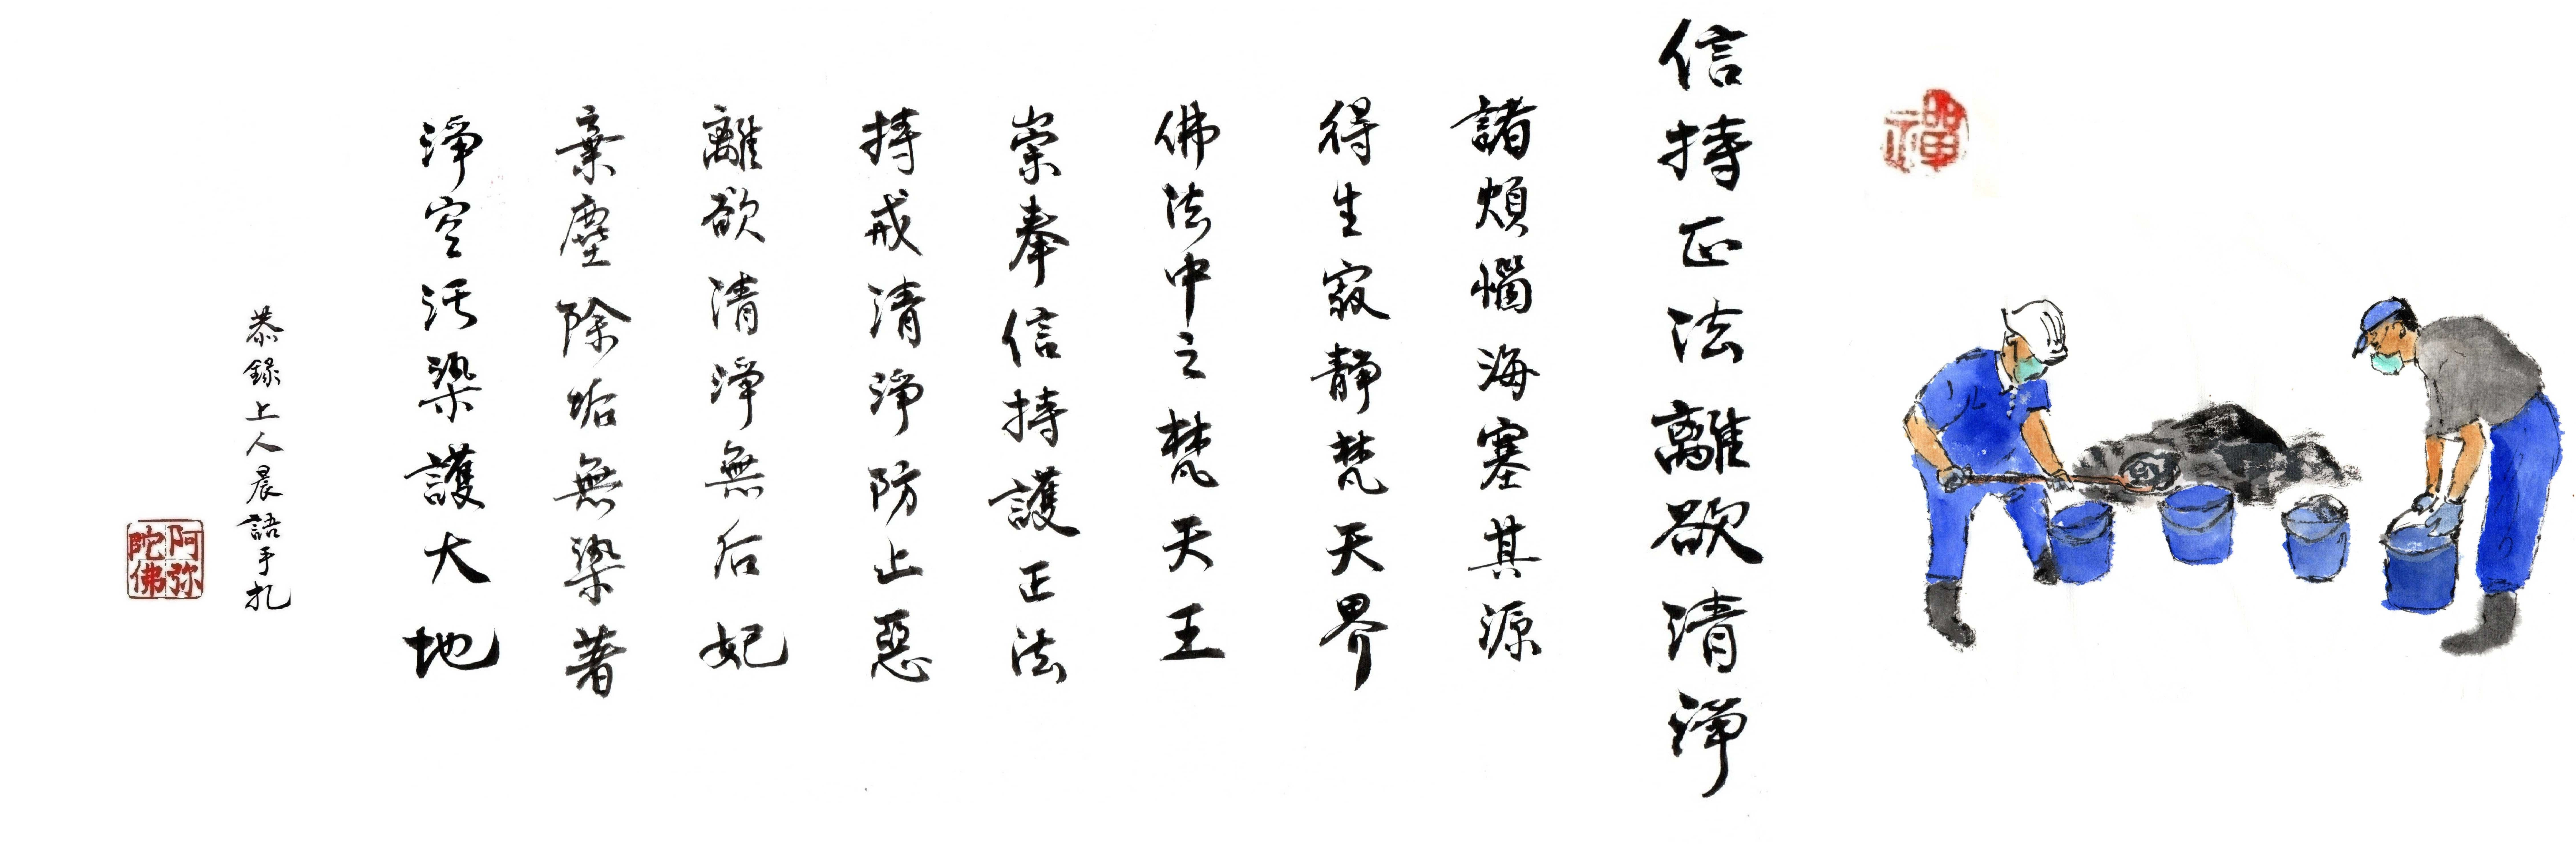 禪
信持正法離欲清淨
諸煩惱海塞其源
得生寂靜梵天界
佛法中之梵天王
崇奉信持護正法
持戒清淨防止惡
離欲清淨無后妃
棄塵除垢無染著
淨空污染護大地
恭錄上人晨語手札
阿弥
陀佛